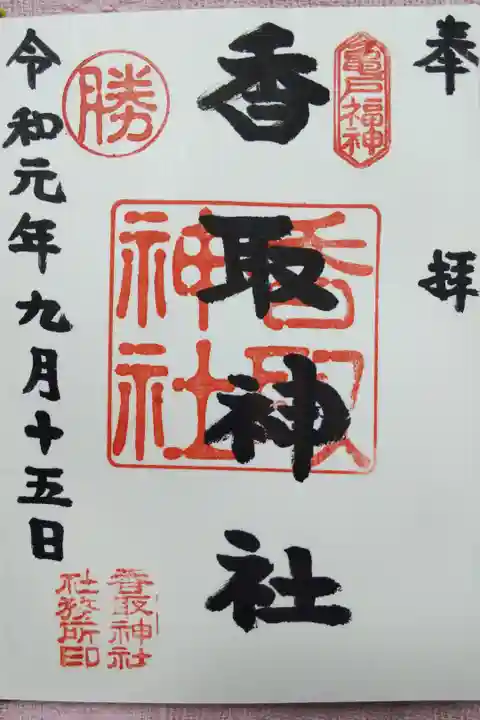 奉拝
亀戸福神
香取神社
香取神社
勝
令和元年九月十五日
香取神社
社務所印